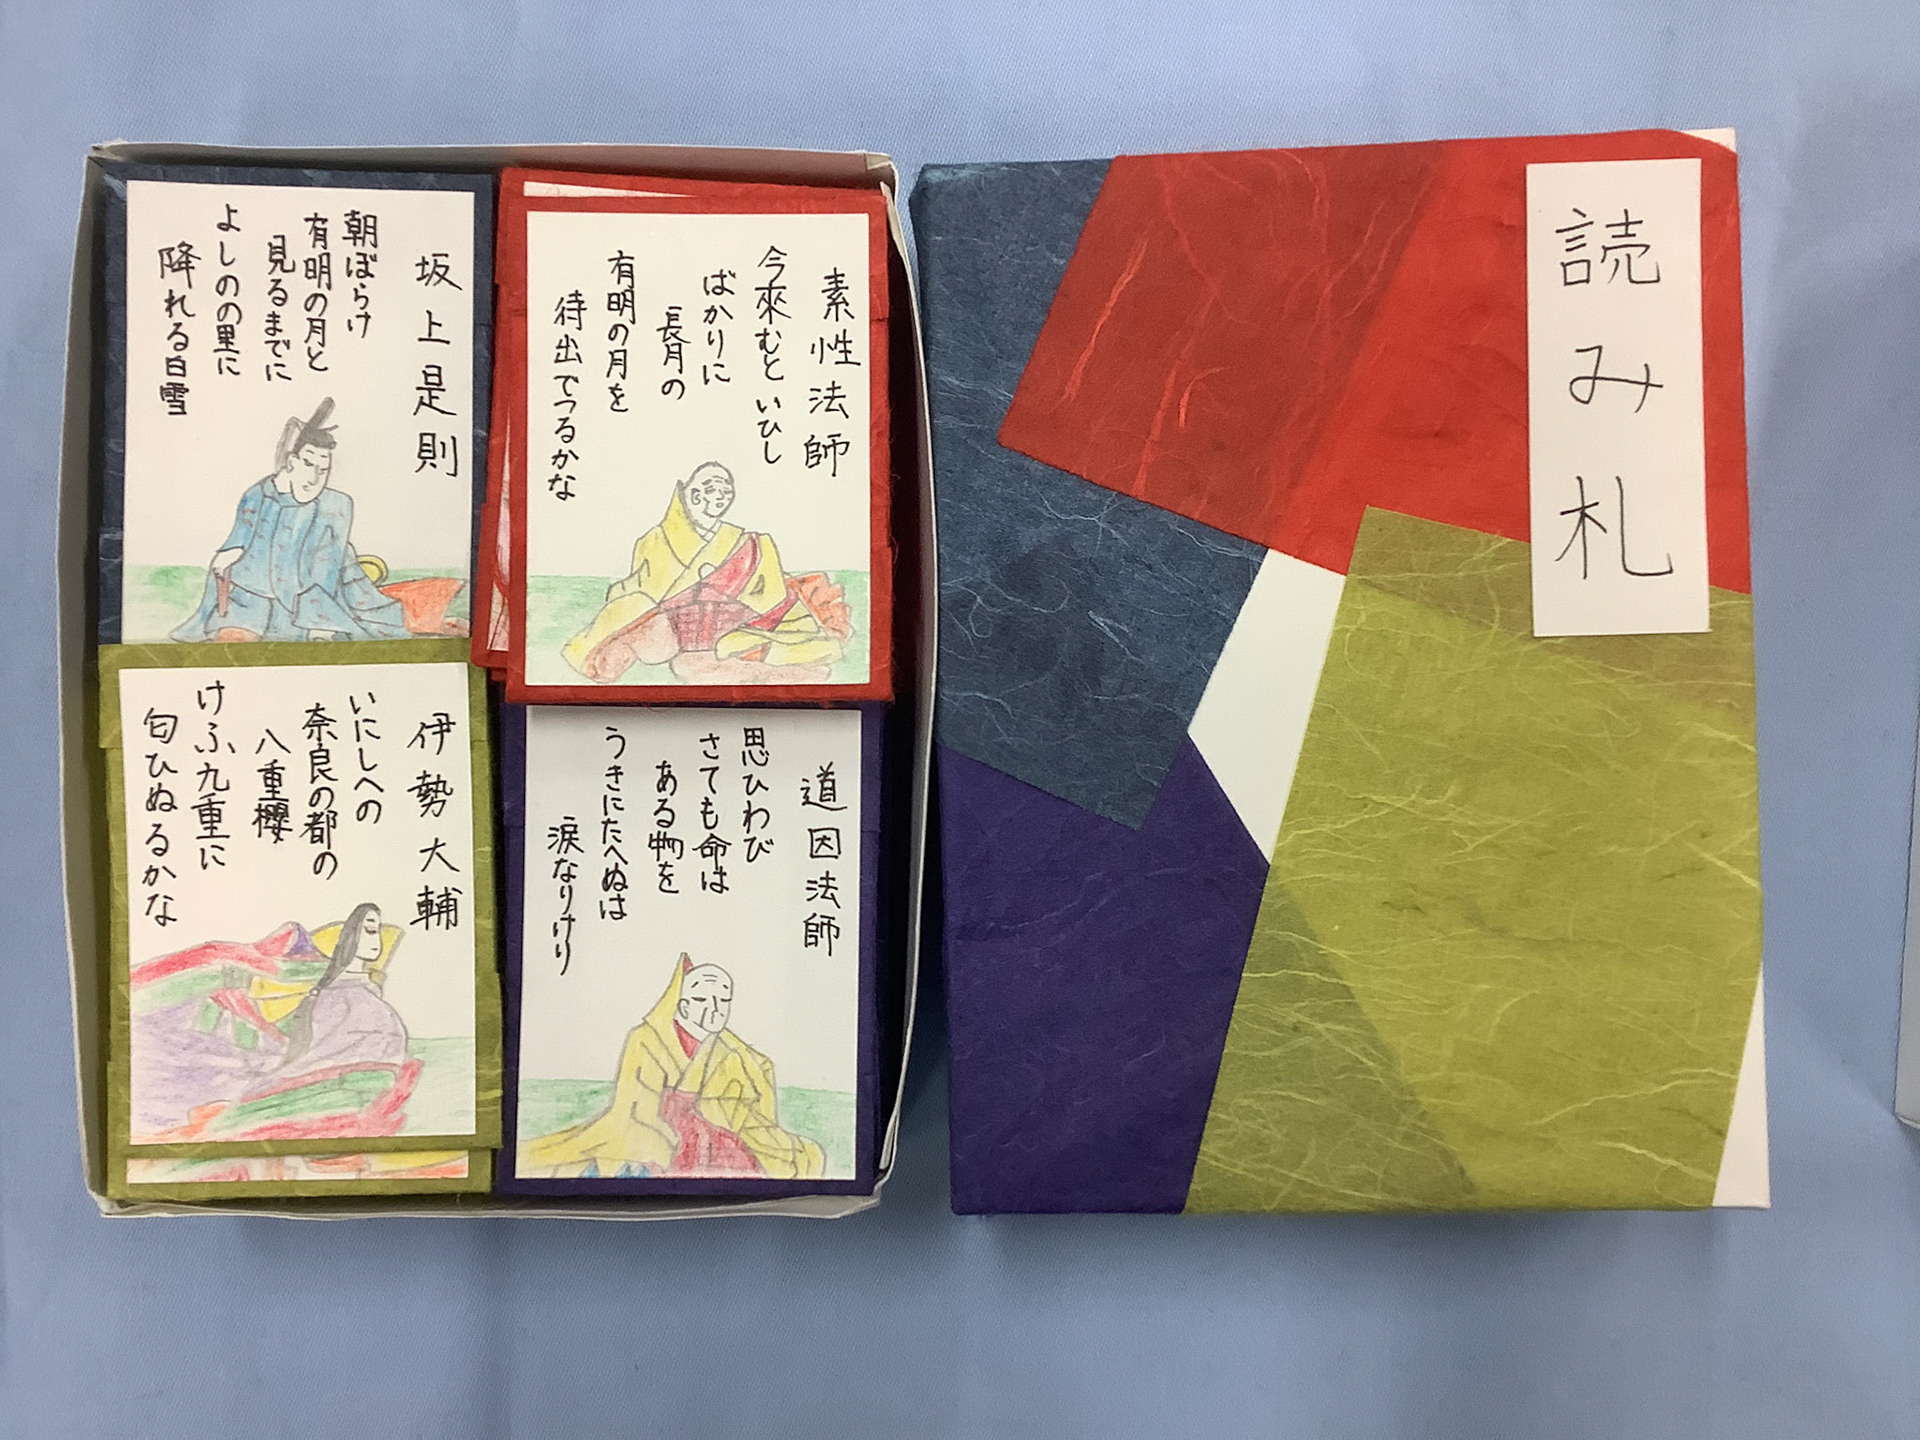 坂上是則
朝ぼらけ
有明の月と
見るまでに
よしのの里に
降れる白雪
素性法師
今來むといひし
ばかりに
長月の
有明の月を
待出でつるかな
伊勢大輔
いにしへの
奈良の都の
八重櫻
けふ九重に
匂ひぬるかな
道因法師
思ひわび
さても命は
ある物を
うきにたへぬは
涙なりけり
読み札